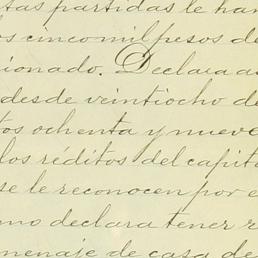 tas partidas le han
os cinco mil pesos de
ionado. Declara as
desde veintiocho de
tos ochenta y nueve
los réditos del capita
se le reconocen por e
mo declara tener r
menaje de casa de